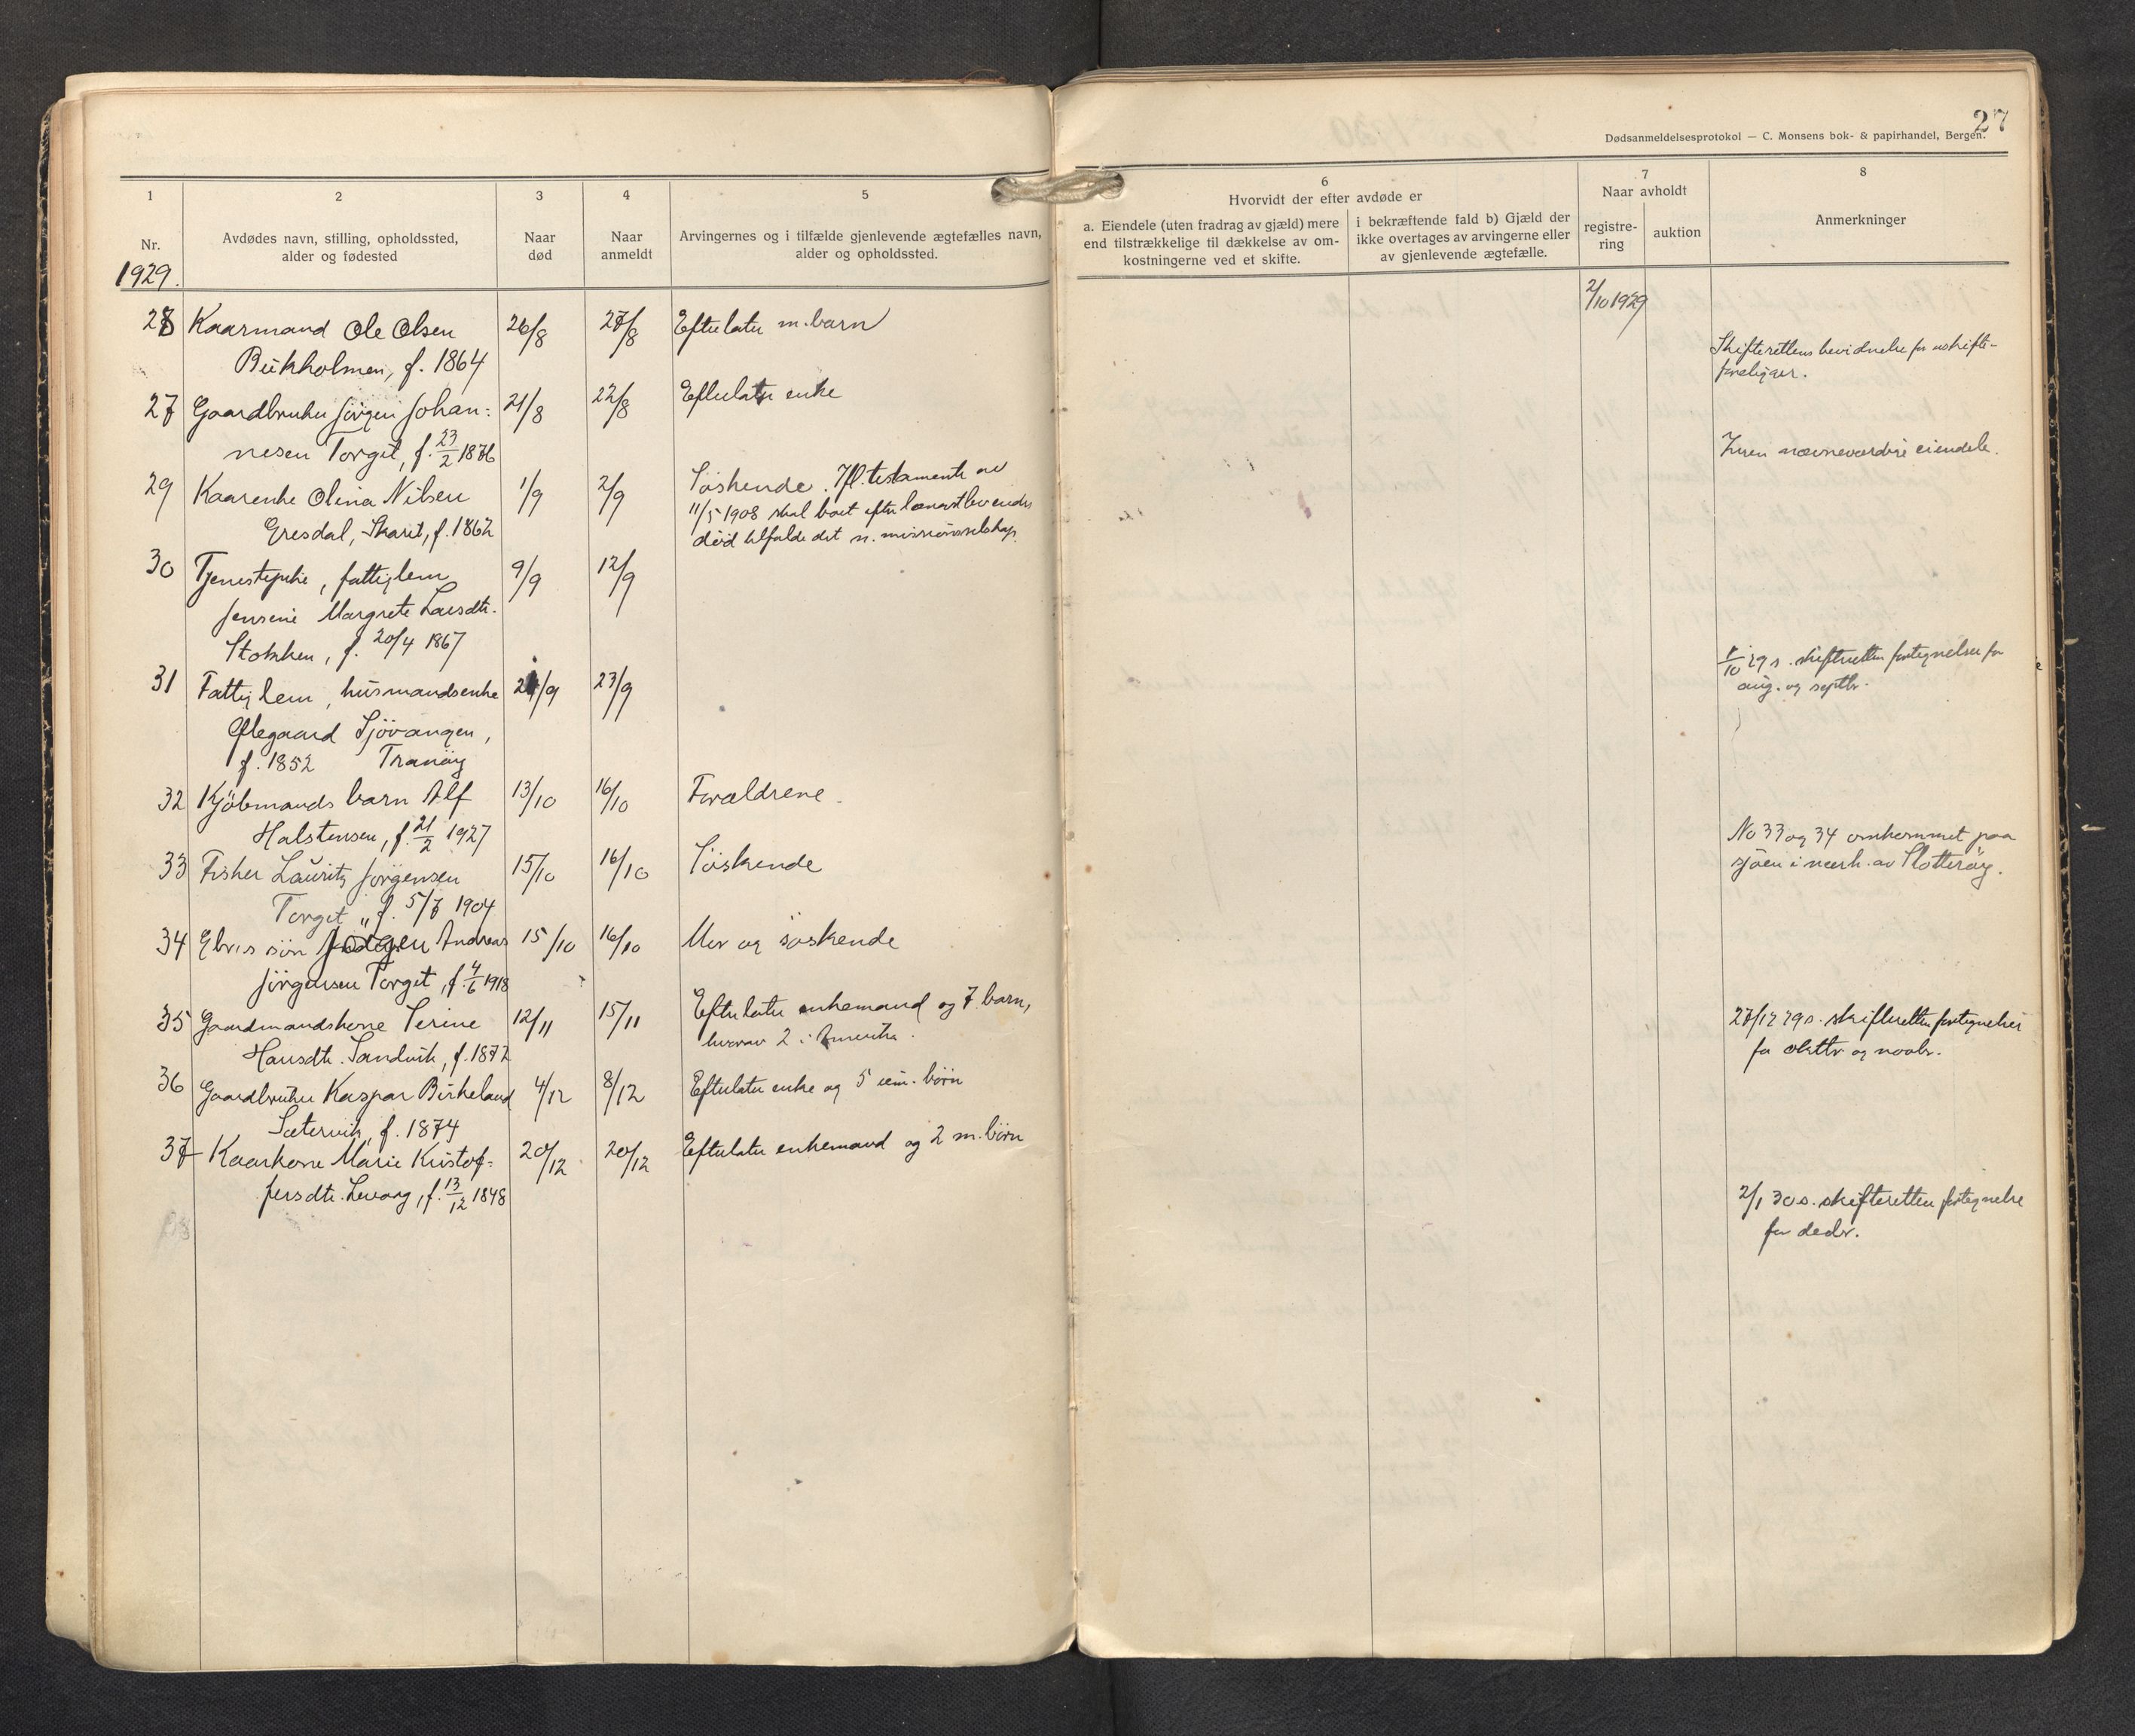 27
Dødsanmeldelsesprotokol — C. Monsens bok- & papirhandel, Bergen.
1
2
3
4
5
Nr.
Avdødes navn, stilling, opholdssted,
alder og fødested
Naar
død
Naar
anmeldt
Arvingernes og i tilfælde gjenlevende ægtefælles navn,
alder og opholdssted.
1929.
28 Kaarmand Ole Olsen 26/8 27/8 Efterlater m. barn
Bukholmen, f. 1864
27 Gaardbruker Jörgen Johan- 21/8 22/8 Efterlater enke
nesen Torget, f. 23/2 1876
29 Kaarenke Olina Nilsen 1/9 2/9 Söskende. Ifl. testamente av
Eresdal, Skaret, f. 1862 11/5 1908 skal boet efter længstlevendes
död tilfalde det n. missionsselskap.
30 Tjenestepike, fattiglem 9/9 12/9
Jensine Margrete Larsdtr.
Stokken, f. 20/4 1867
31 Fattiglem, husmandsenke 21/9 23/9
Olegaard Sjövangen,
f. 1852 Tranöy
32 Kjöbmands barn Alf 13/10 16/10 Forældrene.
Halstensen, f. 21/2 1927
33 Fisker Lauritz Jörgensen 15/10 16/10 Söskende
Torget, f. 5/7 1904
34 Andreas 15/10 16/10 Mor og söskende
Jörgensen Torget, f. 4/6 1918
35 Gaardmandskone Serine 12/11 15/11 Efterlater enkemand og 7 barn,
Hansdtr. Sandvik, f. 1872 hvorav 2 i Amerika.
36 Gaardbruker Kaspar Birkeland 4/12 8/12 Efterlater enke og 5 um. börn
Sætervik, f. 1874
37 Kaarkone Marie Kristof- 20/12 20/12 Efterlater enkemand og 2 m. börn
fersdtr. Levang, f. 13/12 1848
38
6
Hvorvidt der efter avdøde er
a. Eiendele (uten fradrag av gjæld) mere
end tilstrækkelige til dækkelse av om-
kostningerne ved et skifte.
i bekræftende fald b) Gjæld der
ikke overtages av arvingerne eller
av gjenlevende ægtefælle.
7
Naar avholdt
registre-
ring
auktion
8
Anmerkninger
2/10 1929
Skifterettens bevidnelse for uskifte
foreligger.
Ingen nævneværdige eiendele.
1/10 29 s. skifteretten fortegnelse for
aug. og septbr.
No 33 og 34 omkommet paa
sjöen i nærh. av Slotteröy.
27/12 29 s. skifteretten fortegnelser
for oktbr og novbr.
2/1 30 s. skifteretten fortegnelse
for decbr.